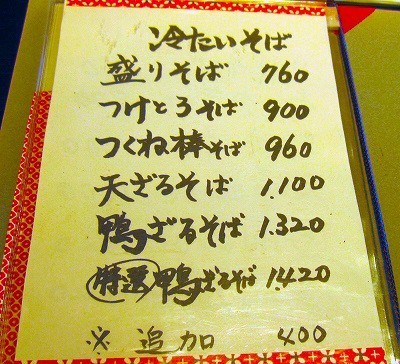 冷たいそば
盛りそば 760
つけとろそば 900
つくね棒そば 960
天ざるそば 1.100
鴨ざるそば 1.320
特選鴨ざるそば 1.420
※ 追加 400